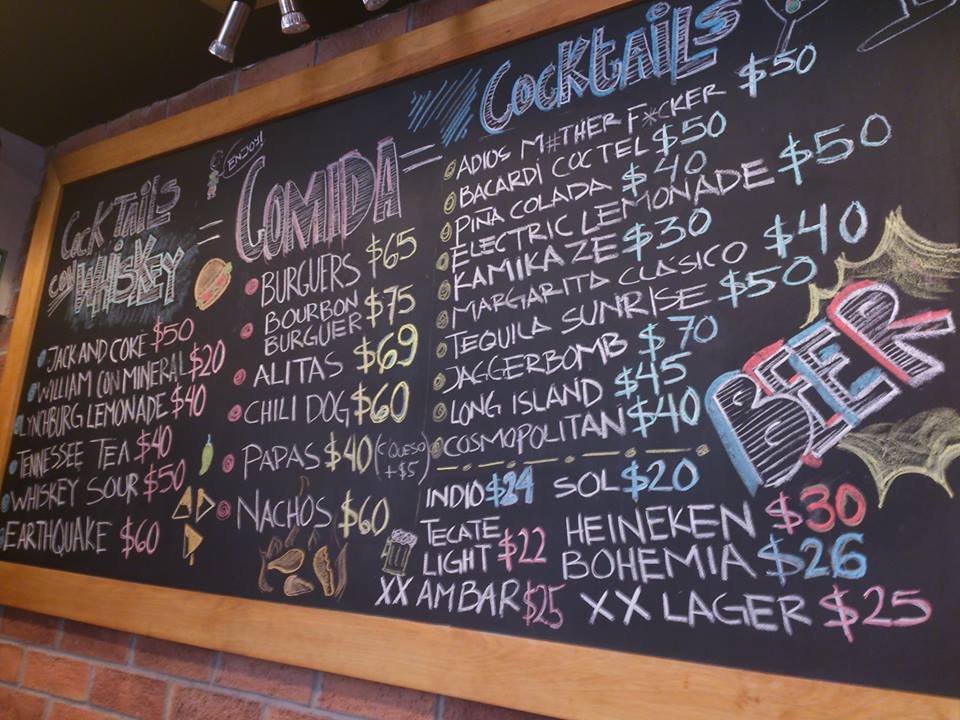 COCKTAILS
CON WHISKEY
JACK AND COKE $50
WILLIAM CON MINERAL $20
LYNCHBURG LEMONADE $40
TENNESSEE TEA $40
WHISKEY SOUR $50
EARTHQUAKE $60
ENJOY!
COMIDA
BURGUERS $65
BOURBON
BURGUER $75
ALITAS $69
CHILI DOG $60
PAPAS $40 (C/QUESO
+$5)
NACHOS $60
COCKTAILS
ADIOS M#THER F*CKER $50
BACARDÍ COCTEL $50
PIÑA COLADA $40
ELECTRIC LEMONADE $50
KAMIKAZE $30
MARGARITA CLASICO $40
TEQUILA SUNRISE $50
JAGGERBOMB $70
LONG ISLAND $45
COSMOPOLITAN $40
BEER
INDIO $24 SOL $20
TECATE
LIGHT $22
HEINEKEN $30
BOHEMIA $26
XX AMBAR $25 XX LAGER $25